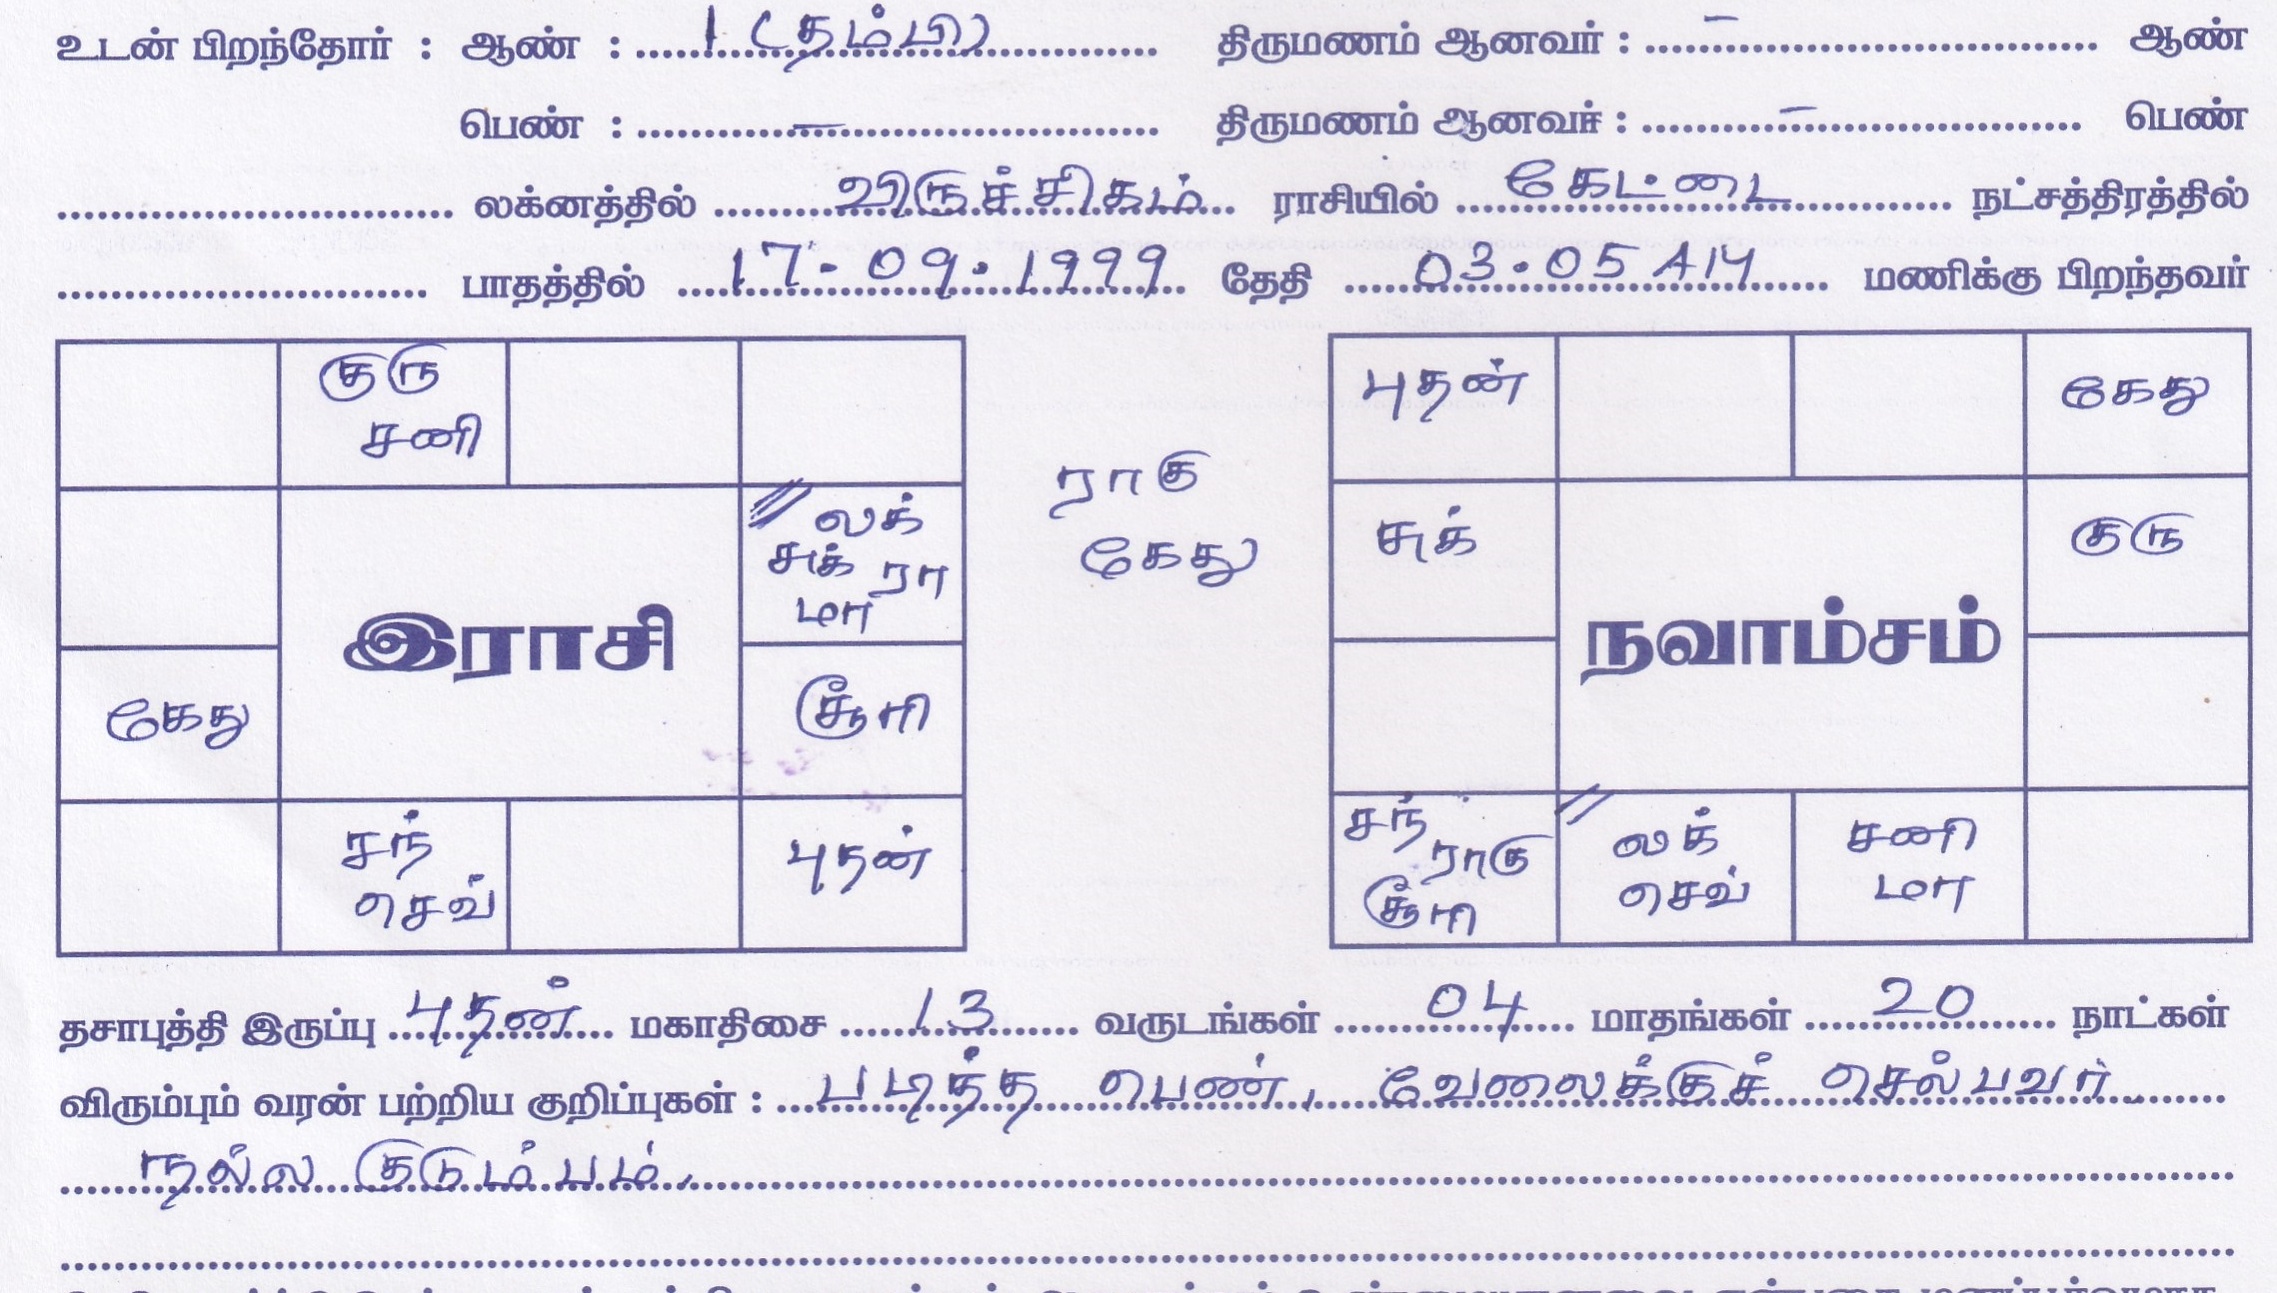 உடன் பிறந்தோர் : ஆண் : 1 (தம்பி) திருமணம் ஆனவர் : – ஆண்
பெண் : – திருமணம் ஆனவர் : – பெண்
லக்னத்தில் விருச்சிகம் ராசியில் கேட்டை நட்சத்திரத்தில்
பாதத்தில் 17.09.1999 தேதி 03.05 AM மணிக்கு பிறந்தவர்
குரு
சனி
லக்
சுக் ரா
மா
இராசி
கேது
சூரி
சந்
செவ்
புதன்
ராகு
கேது
புதன்
கேது
சுக்
குரு
நவாம்சம்
சந்
ராகு
சூரி
லக்
செவ்
சனி
மா
தசாபுத்தி இருப்பு புதன் மகாதிசை 13 வருடங்கள் 04 மாதங்கள் 20 நாட்கள்
விரும்பும் வரன் பற்றிய குறிப்புகள் : படித்த பெண், வேலைக்குச் செல்பவர்.
நல்ல குடும்பம்.